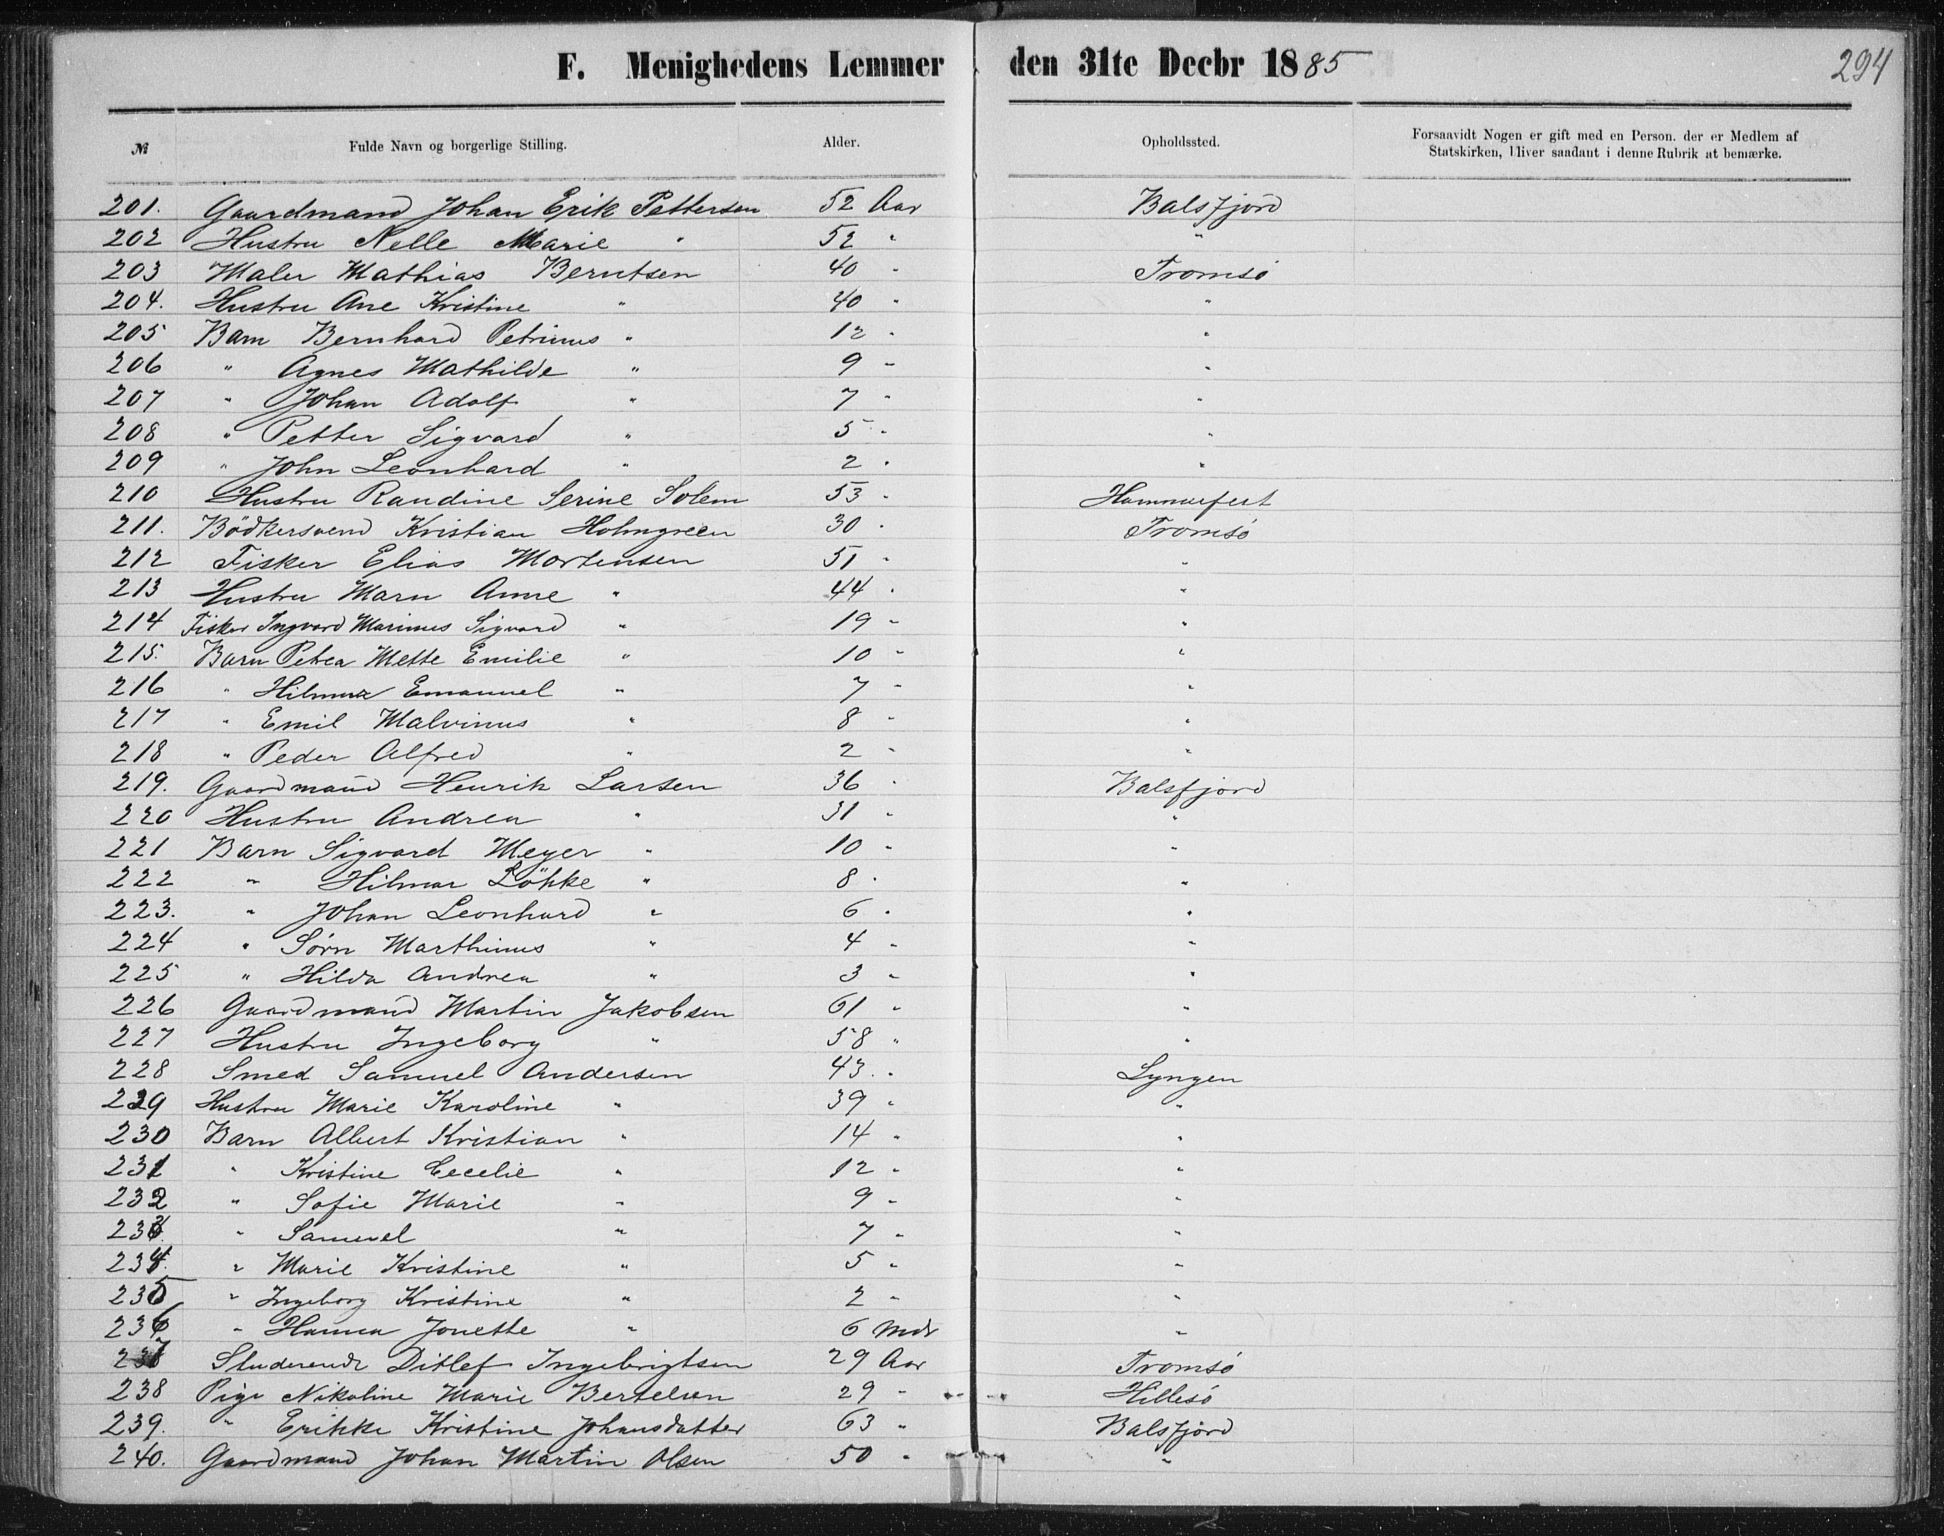 F. Menighedens Lemmer den 31te Decbr 1885 294
№ Fulde Navn og borgerlige Stilling. Alder. Opholdssted. Forsaavidt Nogen er gift med en Person, der er Medlem af Statskirken, bliver saadant i denne Rubrik at bemærke.
201. Gaardmand Johan Erik Pettersen 52 Aar Balsfjord
202 Hustru Nelle Marie " 52 " "
203 Maler Mathias Berntsen 40 " Tromsö
204. Hustru Ane Kristine " 40 " "
205 Barn Bernhard Petrinus " 12 " "
206 " Agnes Mathilde " 9 " "
207 " Johan Adolf " 7 " "
208 " Petter Sigvard " 5 " "
209 " John Leonhard " 2 " "
210 Hustru Randine Serine Solem 53 " Hammerfest
211. Bödkersvend Kristian Holmgreen 30 " Tromsö
212 Fisker Elias Mortensen 51 " "
213 Hustru Maru Anne " 44 " "
214 Fisker Ingvard Marinus Sigvard " 19 " "
215. Barn Petra Mette Emilie " 10 " "
216 " Hilmar Emanuel " 7 " "
217 " Emil Malvinus " 8 " "
218 " Peder Alfred " 2 " "
219. Gaardmand Henrik Larsen 36 " Balsfjord
220 Hustru Andrea " 31 " "
221 Barn Sigvard Meyer " 10 " "
222 " Hilmar Lökke " 8 " "
223. " Johan Leonhard " 6 " "
224 " Sörn Marthinus " 4 " "
225 " Hilda Andrea " 3 " "
226 Gaardmand Martin Jakobsen 61 " "
227 Hustru Ingeborg " 58 " "
228 Smed Samuel Andersen 43 " Lyngen
229 Hustru Marie Karoline " 39 " "
230 Barn Albert Kristian " 14 " "
231 " Kristine Cecelie " 12 " "
232 " Sofie Marie " 9 " "
233 " Samuel " 7 " "
234. " Marie Kristine " 5 " "
235 " Ingeborg Kristine " 2 " "
236 " Hanna Jonette " 6 Mdr "
237 Studerende Ditlef Ingebrigtsen 29 Aar Tromsö
238 Pige Nikoline Marie Bertelsen 29 " Hillesö
239. " Erikke Kristine Johansdatter 63 " Balsfjord
240. Gaardmand Johan Martin Olsen 50 " "